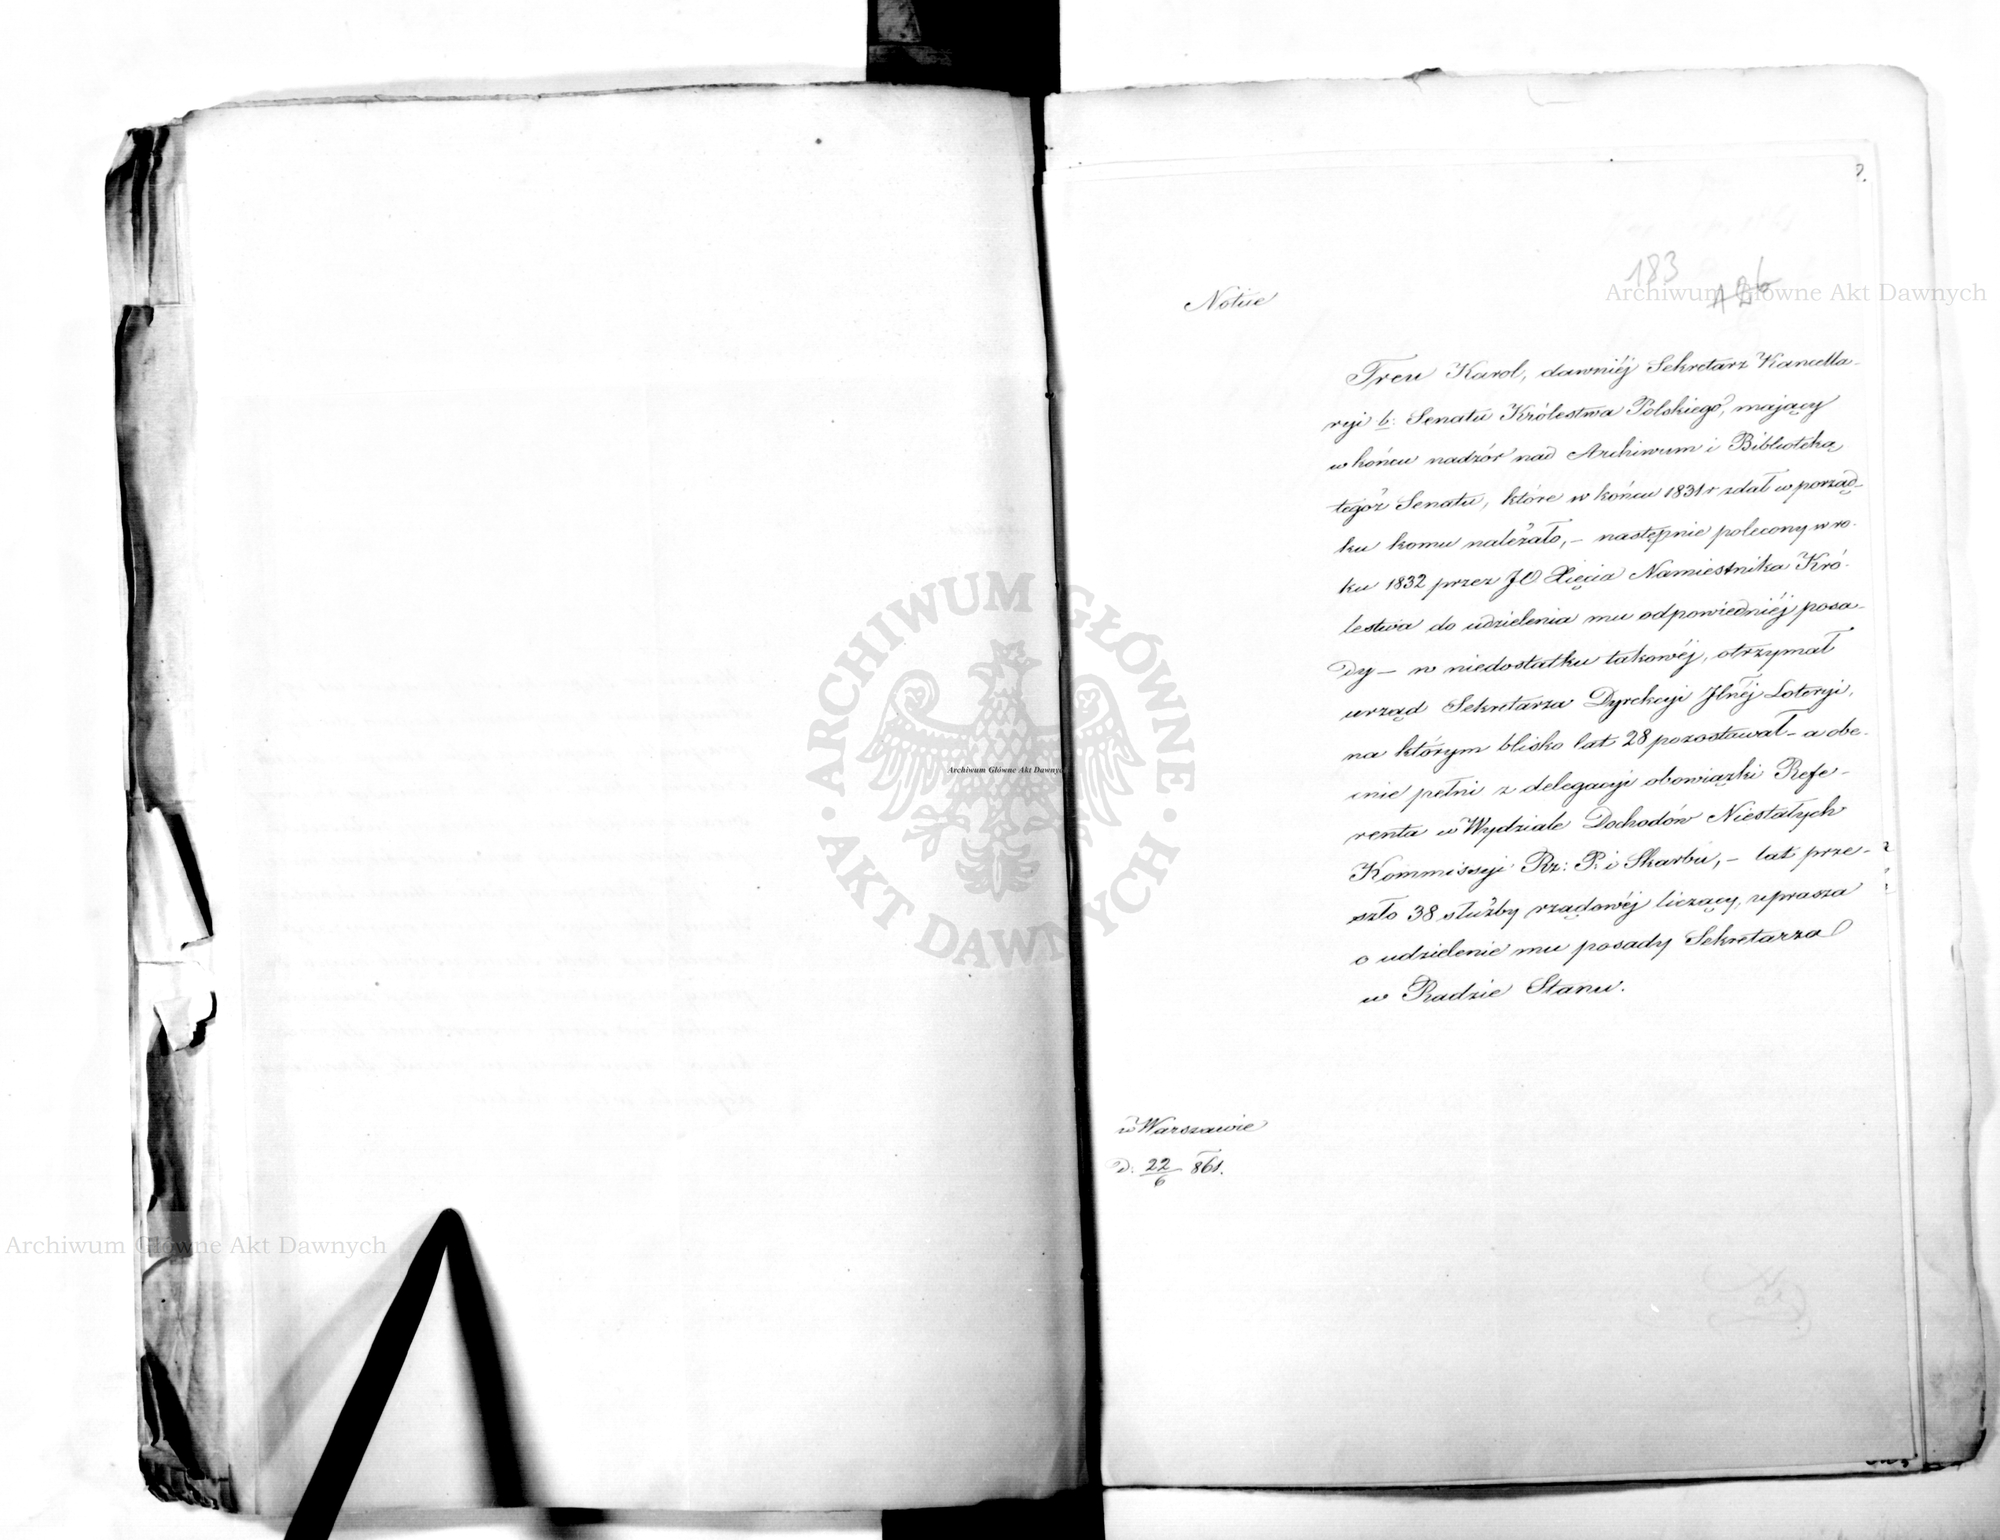 183
126
Archiwum Główne Akt Dawnych
Notue
Treu Karol, dawniéj Sekretarz Kancella-
ryi b: Senatu Królestwa Polskiego, mający
w końcu nadzór nad Archiwum i Biblioteką
tegoż Senatu, które w końcu 1831 r zdał w porząd-
ku komu należało, – następnie polecony w ro-
ku 1832 przez JO Xięcia Namiestnika Kró-
lestwa do udzielenia mu odpowiedniéj posa-
dy – w niedostatku takowéj, otrzymał
urząd Sekretarza Dyrekcyi Jlnéj Loteryi,
na którym blisko lat 28 pozostawał – a obe-
cnie pełni z delegacyi obowiązki Refe-
renta w Wydziale Dochodów Niestałych
Kommissyi Rz: P. i Skarbu, – lat prze-
szło 38 służby rządowéj liczący, uprasza
o udzielenie mu posady Sekretarza
w Radzie Stanu.
w Warszawie
D. 22/6 861.
ARCHIWUM GŁÓWNE AKT DAWNYCH
Archiwum Główne Akt Dawnych
Archiwum Główne Akt Dawnych